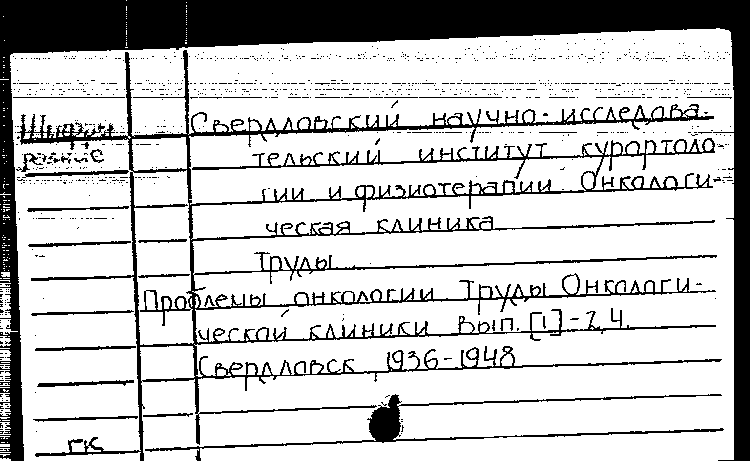 Шифры
разные
Свердловский научно-исследова-
тельский институт курортоло-
гии и физиотерапии Онкологи-
ческая клиника
Труды
Проблемы онкологии Труды Онкологи-
ческой клиники Вып. [1]-2,4.
Свердловск, 1936-1948
ГК